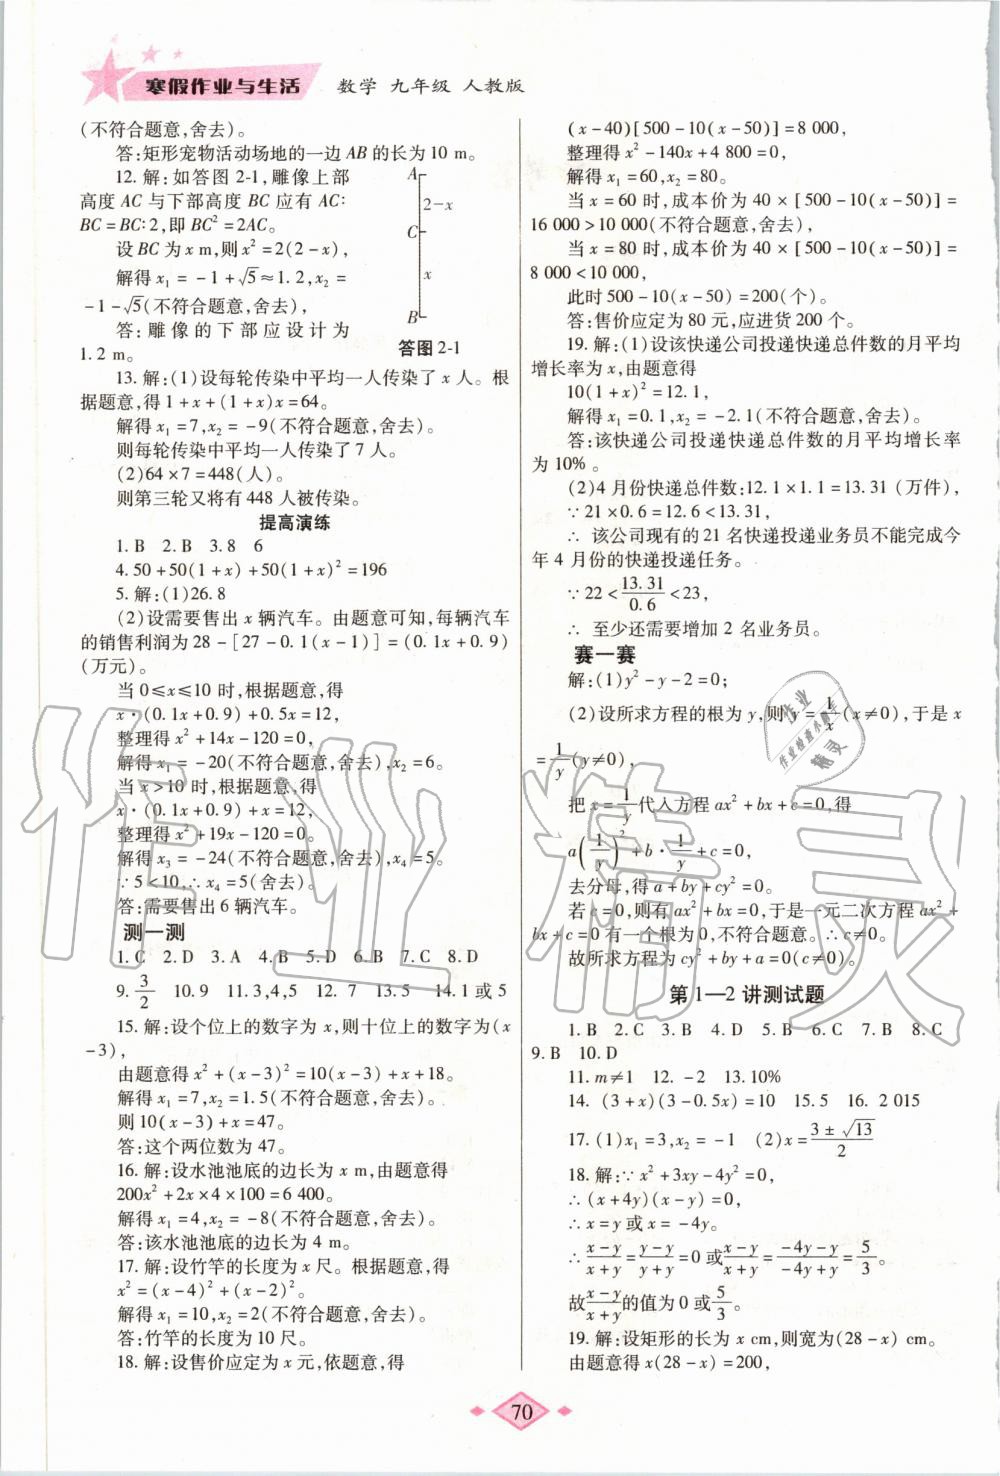 寒假作业与生活 数学 九年级 人教版
(不符合题意,舍去)。
答:矩形宠物活动场地的一边 AB 的长为 10 m。
12. 解:如答图 2-1,雕像上部
高度 AC 与下部高度 BC 应有 AC∶
BC=BC∶2,即 BC²=2AC。
设 BC 为 x m,则 x²=2(2-x),
解得 x₁=-1+√5≈1.2,x₂=
-1-√5(不符合题意,舍去),
答:雕像的下部应设计为
1.2 m。
A
2-x
C
x
B
答图 2-1
13. 解:(1)设每轮传染中平均一人传染了 x 人。根
据题意,得 1+x+(1+x)x=64。
解得 x₁=7,x₂=-9(不符合题意,舍去)。
则每轮传染中平均一人传染了 7 人。
(2)64×7=448(人)。
则第三轮又将有 448 人被传染。
提高演练
1. B 2. B 3. 8 6
4. 50+50(1+x)+50(1+x)²=196
5. 解:(1)26.8
(2)设需要售出 x 辆汽车。由题意可知,每辆汽车
的销售利润为 28-[27-0.1(x-1)]=(0.1x+0.9)
(万元)。
当 0≤x≤10 时,根据题意,得
x·(0.1x+0.9)+0.5x=12,
整理得 x²+14x-120=0,
解得 x₁=-20(不符合题意,舍去),x₂=6。
当 x>10 时,根据题意,得
x·(0.1x+0.9)+x=12,
整理得 x²+19x-120=0,
解得 x₃=-24(不符合题意,舍去),x₄=5。
∵5<10,∴x₄=5(舍去)。
答:需要售出 6 辆汽车。
测一测
1. C 2. D 3. A 4. B 5. D 6. B 7. C 8. D
9. 3/2 10. 9 11. 3,4,5 12. 7 13. 5 14. 1 或 5
15. 解:设个位上的数字为 x,则十位上的数字为(x
-3),
由题意得 x²+(x-3)²=10(x-3)+x+18。
解得 x₁=7,x₂=1.5(不符合题意,舍去)。
则 10(x-3)+x=47。
答:这个两位数为 47。
16. 解:设水池池底的边长为 x m,由题意得
200x²+2x×4×100=6 400。
解得 x₁=4,x₂=-8(不符合题意,舍去)。
答:该水池池底的边长为 4 m。
17. 解:设竹竿的长度为 x 尺。根据题意,得
x²=(x-4)²+(x-2)²。
解得 x₁=10,x₂=2(不符合题意,舍去)。
答:竹竿的长度为 10 尺。
18. 解:设售价应定为 x 元,依题意,得
(x-40)[500-10(x-50)]=8 000,
整理得 x²-140x+4 800=0,
解得 x₁=60,x₂=80。
当 x=60 时,成本价为 40×[500-10(x-50)]=
16 000>10 000(不符合题意,舍去),
当 x=80 时,成本价为 40×[500-10(x-50)]=
8 000<10 000,
此时 500-10(x-50)=200(个)。
答:售价应定为 80 元,应进货 200 个。
19. 解:(1)设该快递公司投递快递总件数的月平均
增长率为 x,由题意得
10(1+x)²=12.1,
解得 x₁=0.1,x₂=-2.1(不符合题意,舍去)。
答:该快递公司投递快递总件数的月平均增长率
为 10%。
(2)4 月份快递总件数:12.1×1.1=13.31(万件),
∵21×0.6=12.6<13.31,
∴ 该公司现有的 21 名快递投递业务员不能完成今
年 4 月份的快递投递任务。
∵22<13.31/0.6<23,
∴ 至少还需要增加 2 名业务员。
赛一赛
解:(1)y²-y-2=0;
(2)设所求方程的根为 y,则 y=1/x(x≠0),于是 x
=1/y(y≠0),
把 x=1/y代入方程 ax²+bx+c=0,得
a(1/y)²+b·1/y+c=0,
去分母,得 a+by+cy²=0。
若 c=0,则有 ax²+bx=0,于是一元二次方程 ax²+
bx+c=0 有一个根为 0,不符合题意。∴c≠0。
故所求方程为 cy²+by+a=0(c≠0)。
第 1—2 讲测试题
1. B 2. C 3. B 4. D 5. B 6. C 7. B 8. C
9. B 10. D
11. m≠1 12. -2 13. 10%
14. (3+x)(3-0.5x)=10 15. 5 16. 2 015
17. (1)x₁=3,x₂=-1 (2)x=(3±√13)/2
18. 解:∵x²+3xy-4y²=0,
∴(x+4y)(x-y)=0,
∴x=y 或 x=-4y。
∴(x-y)/(x+y)=(y-y)/(y+y)=0 或(x-y)/(x+y)=(-4y-y)/(-4y+y)=5/3。
故(x-y)/(x+y)的值为 0 或5/3。
19. 解:设矩形的长为 x cm,则宽为(28-x) cm。
由题意得 x(28-x)=200,
70
作业精灵
作业
作业检查小助手
精灵